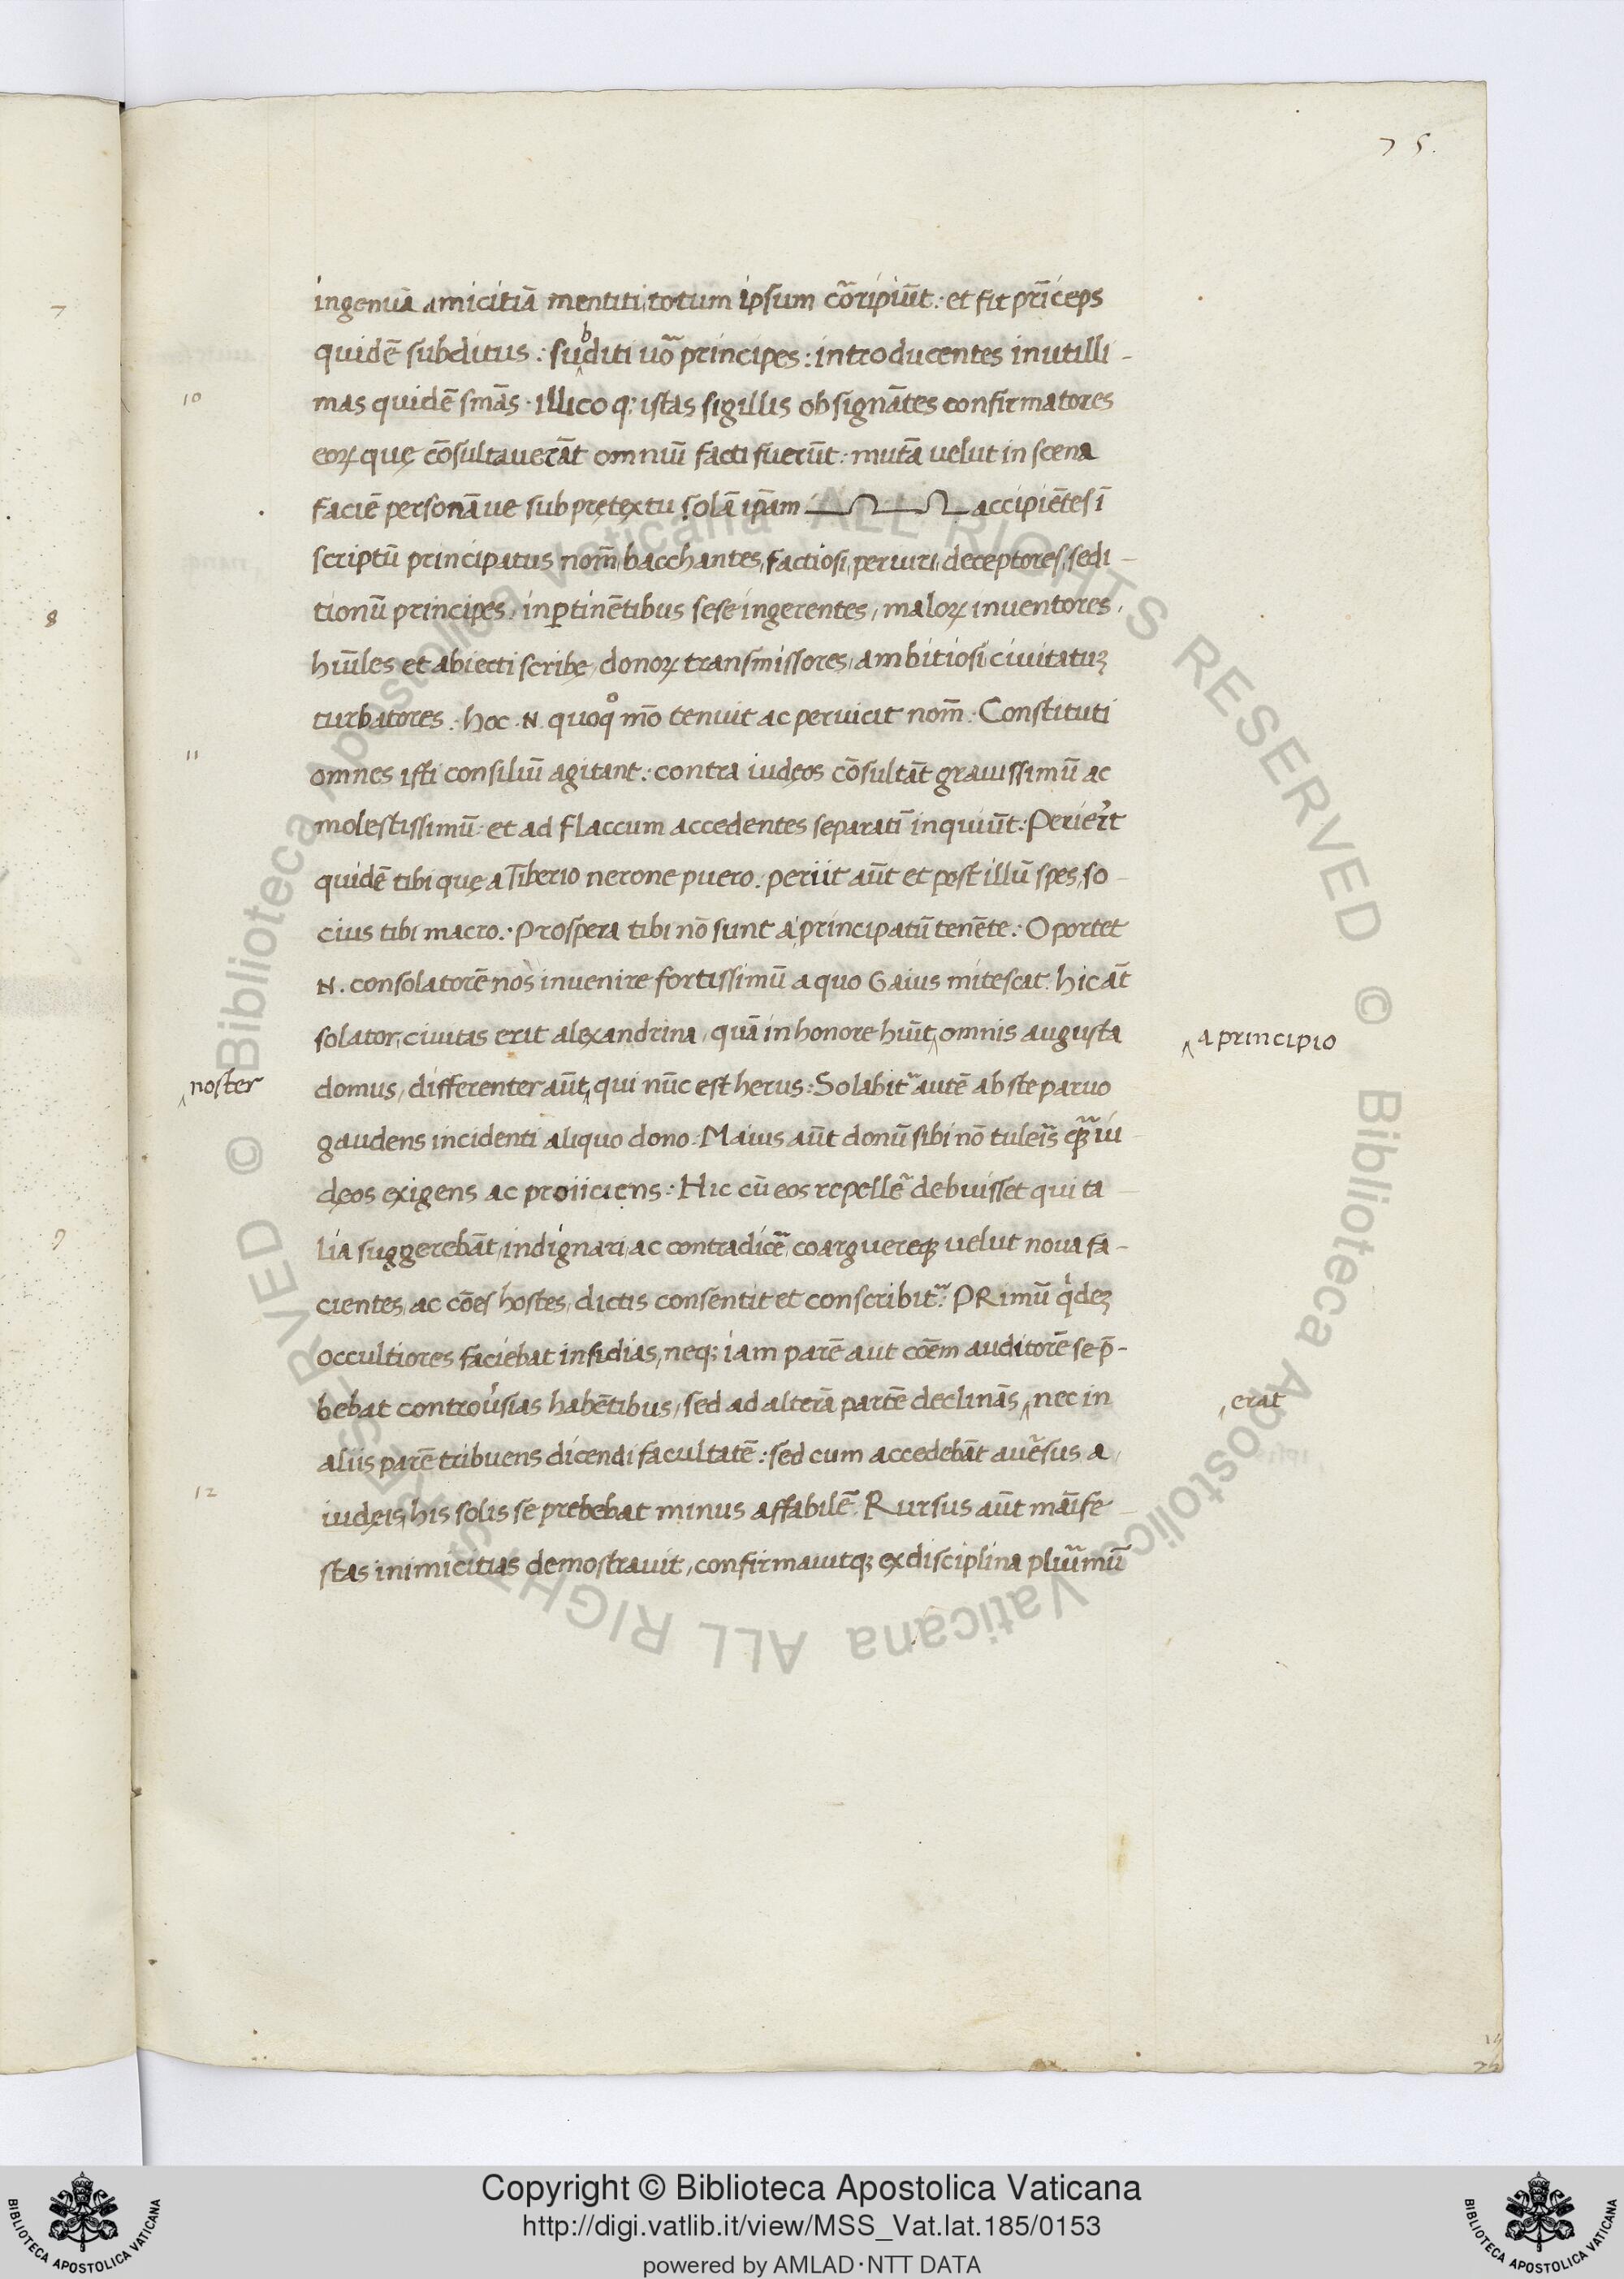 75.
ingenuā amicitiā mentiti, totum ipsum cōripiūt: et fit prīceps
quidē subditus: subditi uō principes: introducentes inutilli-
10
mas quidē smās. illico q; istas sigillis obsignātes confirmatores
eoꝝ quę cōsultauerāt omniū facti fuerūt: mutā uelut in scena
faciē personā ue sub pretextu solā ipam accipiētes ī
scriptū principatus nom̄, bacchantes, factiosi, periuri, deceptores, sedi-
tionū principes, inꝑtinētibus sese ingerentes, maloꝝ inuentores,
hūiles et abiecti scribę, donoꝝ transmissores, ambitiosi ciuitatuꝫ
turbatores. hoc .N. quoqͦ mō tenuit ac peruicit nom̄. Constituti
11
omnes isti consiliū agitant: contra iudęos cōsultāt grauissimū ac
molestissimū: et ad Flaccum accedentes separatī inquiūt: Perier̄t
quidē tibi quę a Tiberio nerone puero. periit aūt et post illū spes, so-
cius tibi macro. Prospera tibi nō sunt a principatū tenēte. Oportet
.N. consolatorē nos inuenire fortissimū a quo Gaius mitescat. hic āt
solator, ciuitas erit alexandrina, quā in honore hūit ‸ omnis augusta
‸ a principio
‸ noster
domus, differenter aūt ‸ qui nūc est herus: Solabit᷑ autē abs te paruo
gaudens incidenti aliquo dono. Maius aūt donū sibi nō tuleīs qꝫ iu-
dęos exigens ac proiiciens: Hic cū eos repellē debuisset qui ta-
lia suggerebāt, indignari, ac contradicē, coarguereqꝫ uelut noua fa-
cientes, ac cōes hostes, dictis consentit et conscribit᷑. PRimū qͥdeꝫ
occultiores faciebat insidias, neqꝫ iam parē aut cōem auditorē se p̄-
bebat controu̓sias habētibus, sed ad alterā partē declinās ‸ nec in
‸ erat
aliis parē tribuens dicendi facultatē: sed cum accedebāt auēsus a
12
iudęis, his solis se prebebat minus affabilē. Rursus aūt māife-
stas inimicitias demostrauit, confirmauitqꝫ ex disciplina pluīmū
7
8
9
Copyright © Biblioteca Apostolica Vaticana
http://digi.vatlib.it/view/MSS_Vat.lat.185/0153
powered by AMLAD·NTT DATA
BIBLIOTECA APOSTOLICA VATICANA
BIBLIOTECA APOSTOLICA VATICANA
© Biblioteca Apostolica Vaticana ALL RIGHTS RESERVED © Biblioteca Apostolica Vaticana ALL RIGHTS RESERVED